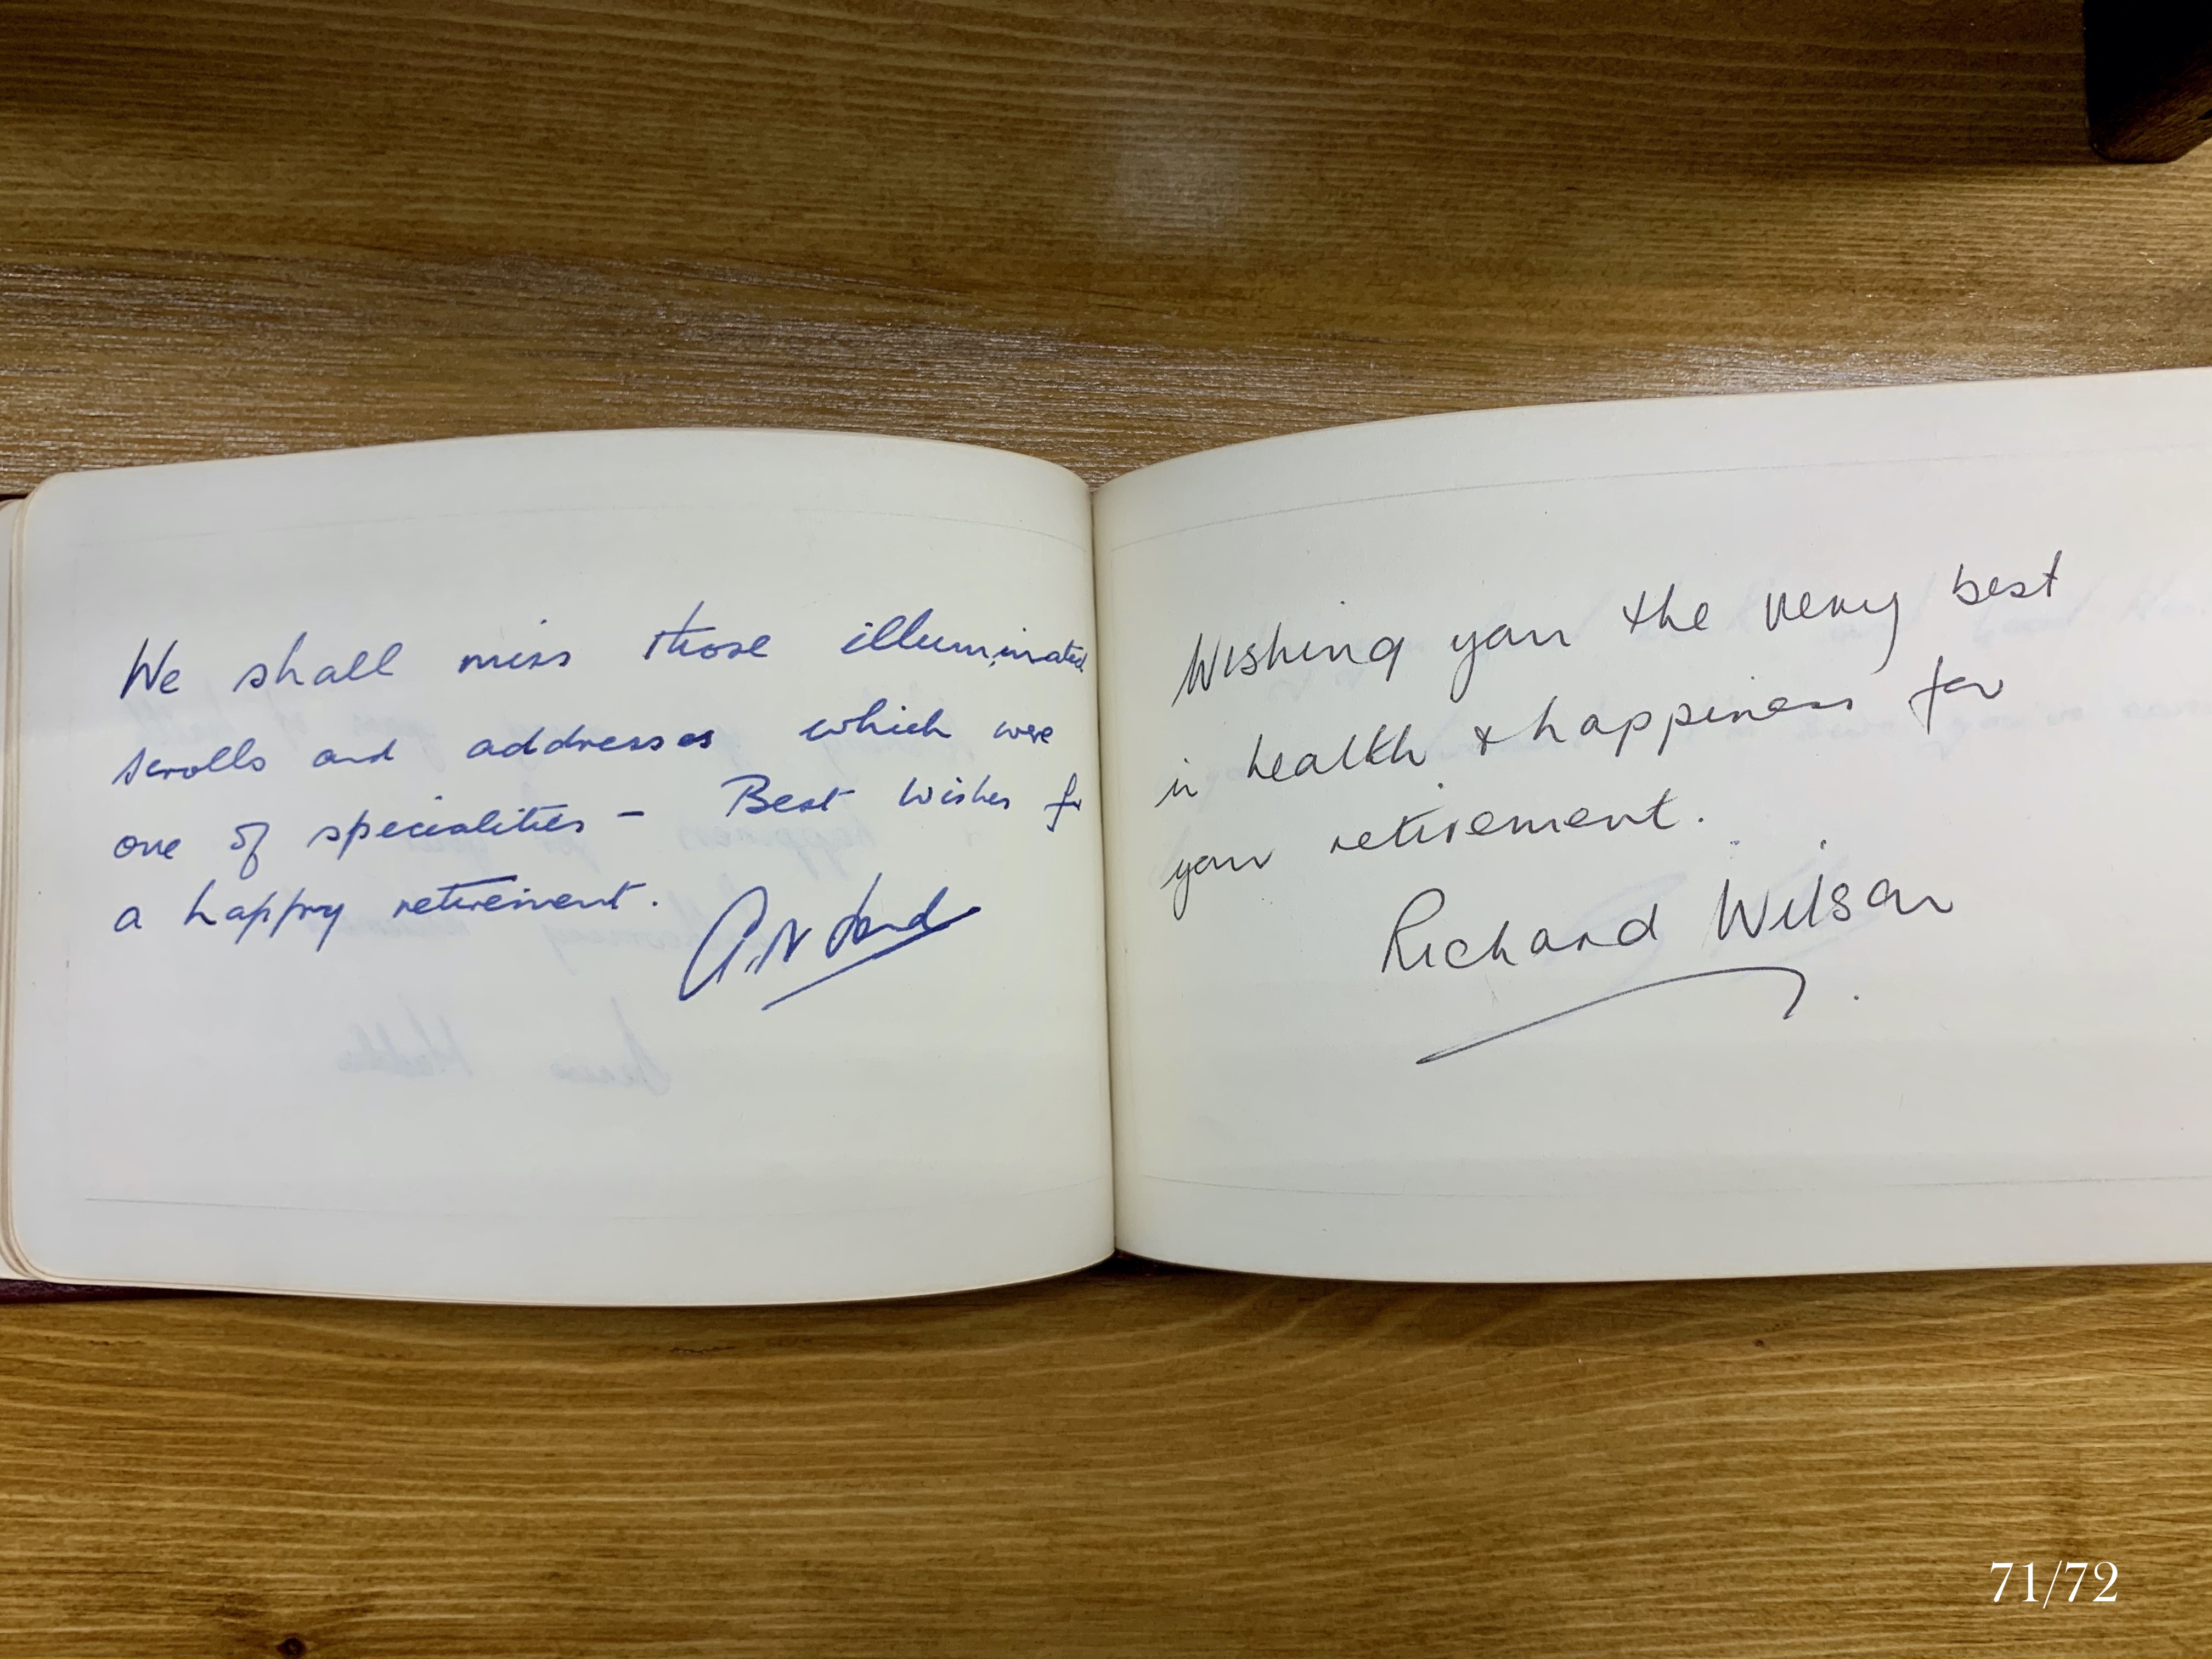 We shall miss those illuminated
scrolls and addresses which were
one of specialities – Best wishes for
a happy retirement.
Wishing you the very best
in health & happiness for
your retirement.
Richard Wilson
71/72